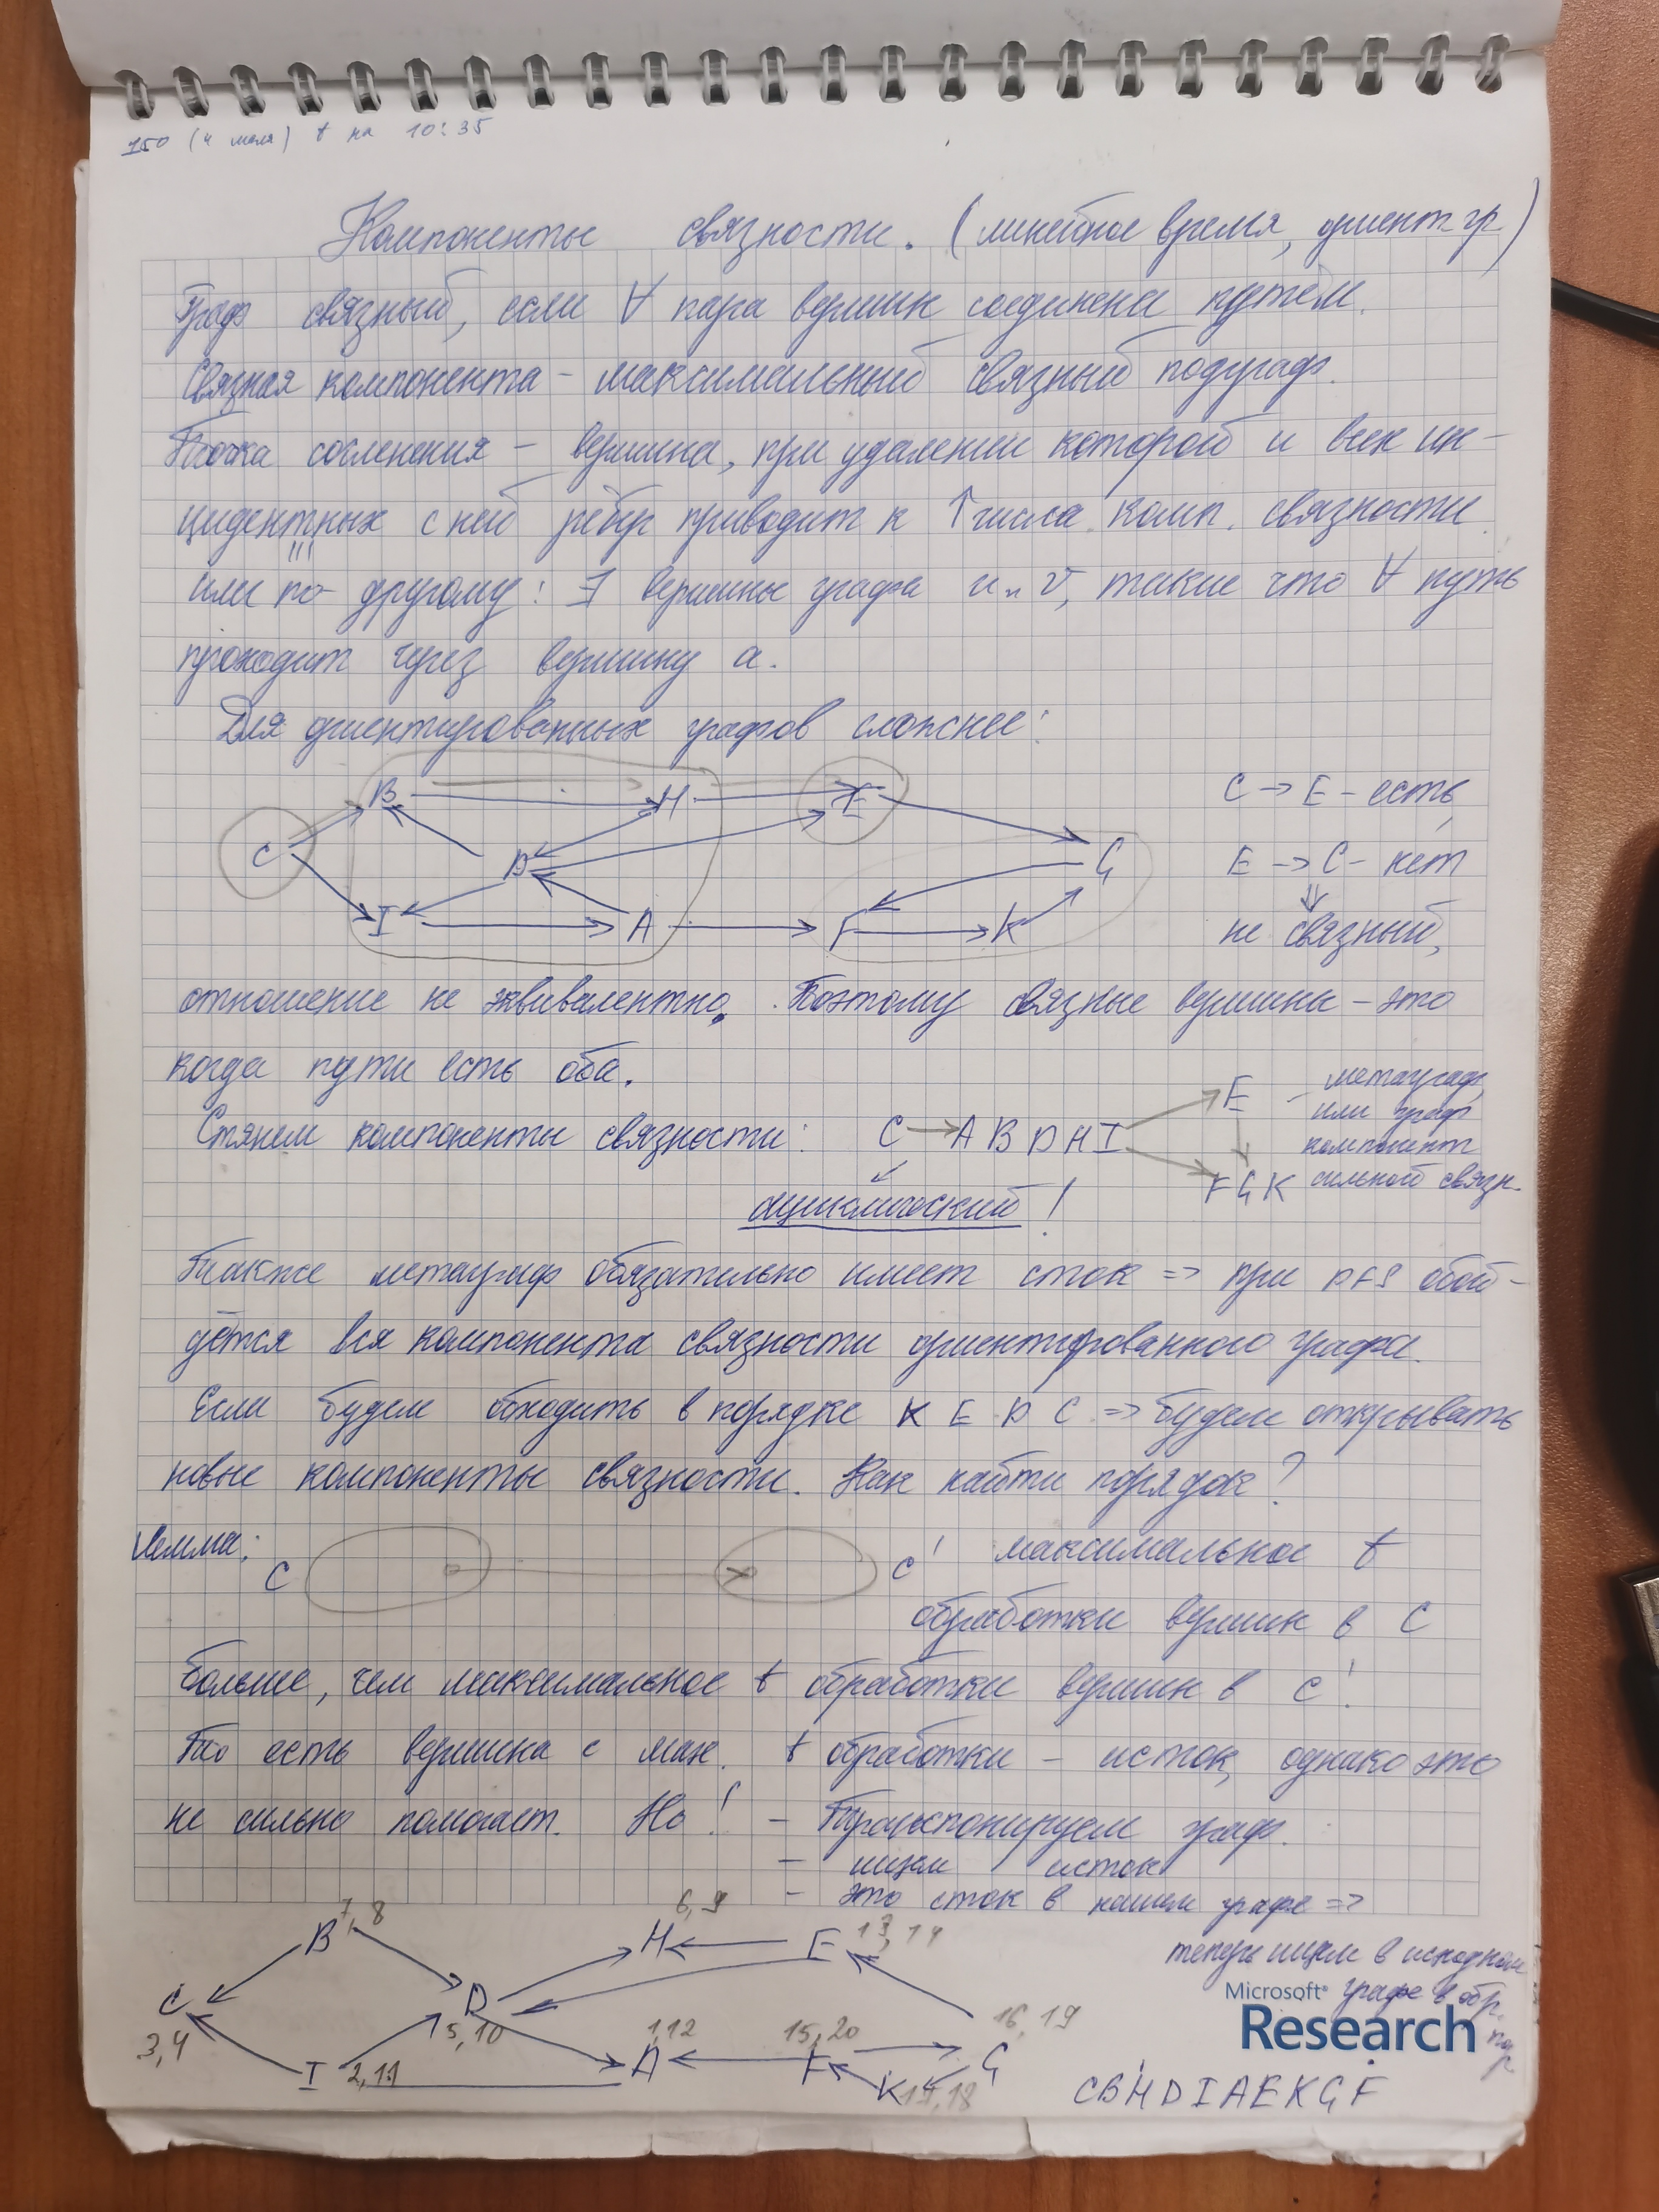 150 (4 мая) t на 10:35
Компоненты связности. (линейное время, ориент. гр)
Граф связный, если ∀ пара вершин соединена путём.
Связная компонента - максимальный связный подграф.
Точка сочленения - вершина, при удалении которой и всех ин-
цидентных с ней рёбер приводит к ↑ числа комп. связности
или по-другому: ∃ вершины графа u и v, такие что ∀ путь
проходит через вершину a.
Для ориентированных графов сложнее:
B H E
C D G
I A F K
C → E - есть,
E → C - нет
⇓
не связный,
отношение не эквивалентно. Поэтому связные вершины - это
когда пути есть оба.
Стянем компоненты связности: C → A B D H I
E
F G K
- метаграф
или граф
компонент
сильной связн.
ациклический!
Также метаграф обязательно имеет сток => при DFS обой-
дётся вся компонента связности ориентированного графа.
Если будем обходить в порядке K E D C => будем открывать
новые компоненты связности. Как найти порядок?
Лемма: C C' максимальное t
обработки вершин в C
больше, чем максимальное t обработки вершин в C'.
То есть вершина с мак. t обработки - исток, однако это
не сильно помогает. Но! - Транспонируем граф.
- ищем исток
- это сток в нашем графе =>
теперь ищем в исходном
графе в обр.
пор
B 7,8 H 6,9 E 13,14
C 3,4 D 5,10 G 16,19
I 2,11 A 1,12 F 15,20 K 17,18
CBHDIAEKGF
Microsoft®
Research